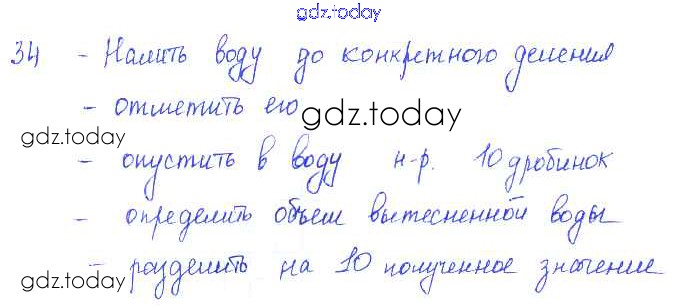 gdz.today
34 - Налить воду до конкретного деления
- отметить его
gdz.today
gdz.today
- опустить в воду н-р. 10 дробинок
- определить объем вытесненной воды
- разделить на 10 полученное значение
gdz.today